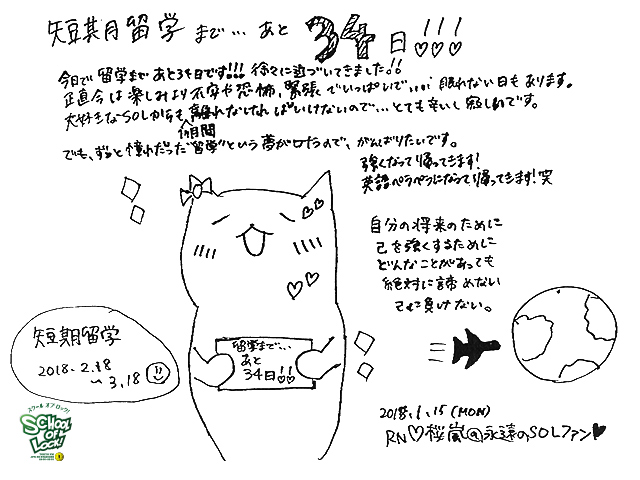 短期留学まで…あと34日!!!
今日で留学まであと34日です!!! 徐々に近づいてきました!!
正直今は楽しみより不安や恐怖、緊張でいっぱいで…眠れない日もあります。
大好きなSOLからも1ヶ月間離れなければいけないので…とても辛いし寂しいです。
でも、ずっと憧れだった"留学"という夢が叶うので、がんばりたいです。
強くなって帰ってきます!
英語ペラペラになって帰ってきます!笑
自分の将来のために
己を強くするために
どんなことがあっても
絶対に諦めない
己に負けない。
留学まで…
あと
34日!!
短期留学
2018.2.18
~3.18
スクール オブ ロック!
SCHOOL
OF
LOCK!
2018.1.15 (MON)
RN♡桜嵐@永遠のSOLファン♥